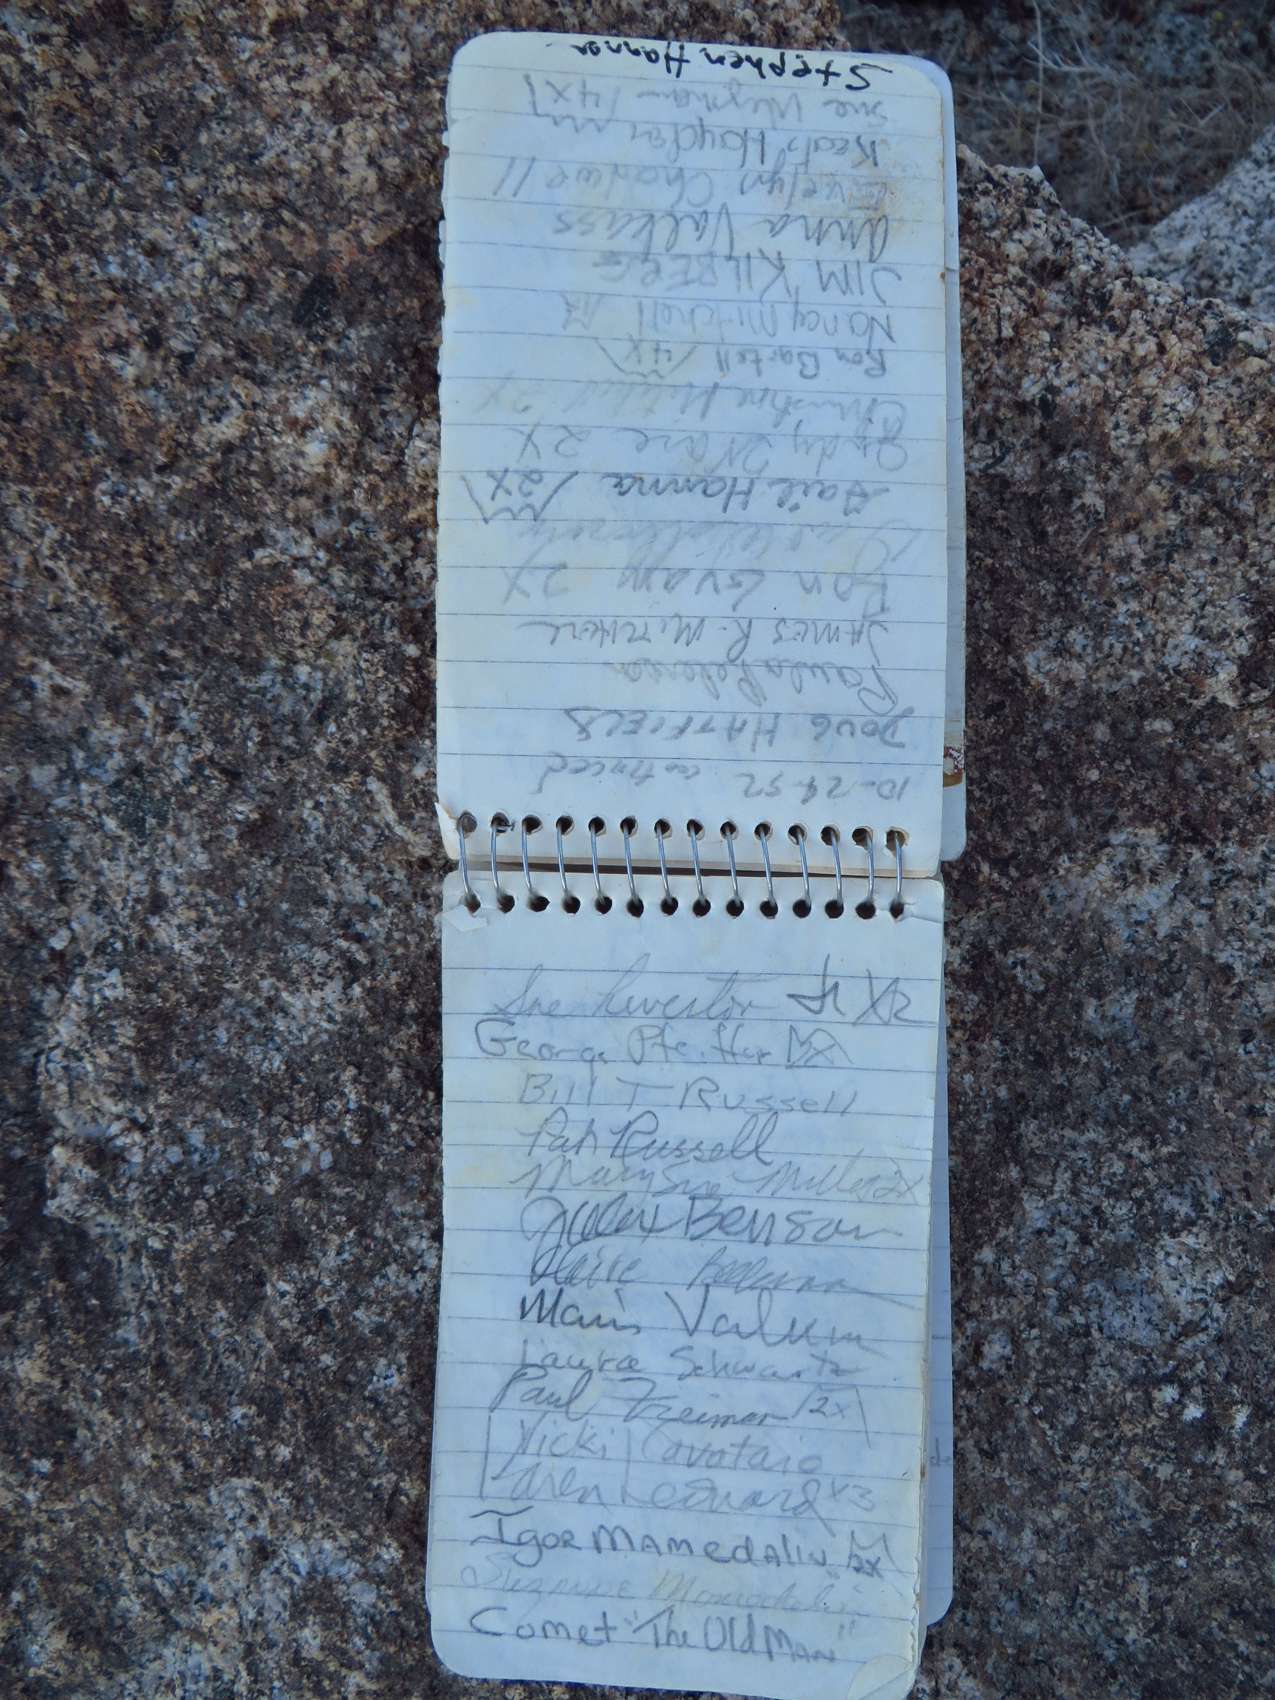 10-24-92 continued
DOUG HATFIELD
Paula Peterson
JAMES R. MITCHELL
Ron Gvam 2X
Gail Hanna 2X
Judy Ware 2X
Christine Mitchell 2X
Ron Bartell 4X
Nancy Mitchell
JIM KILBERG
Anna Valkass
Evelyn Chadwell
Keats Hayden
Sue Wyman 4X
Stephen Hanna
Sue X2
George Pfeiffer 2X
Bill T Russell
Pat Russell
Mary Sue Miller 2X
Benson
Valum
Laura Schwartz
Paul Freiman 2X
Vicki Cavataio
Karen Leonard X3
Igor Mamedalin 2X
Suzanne Mamedalin
Comet "The Old Man"